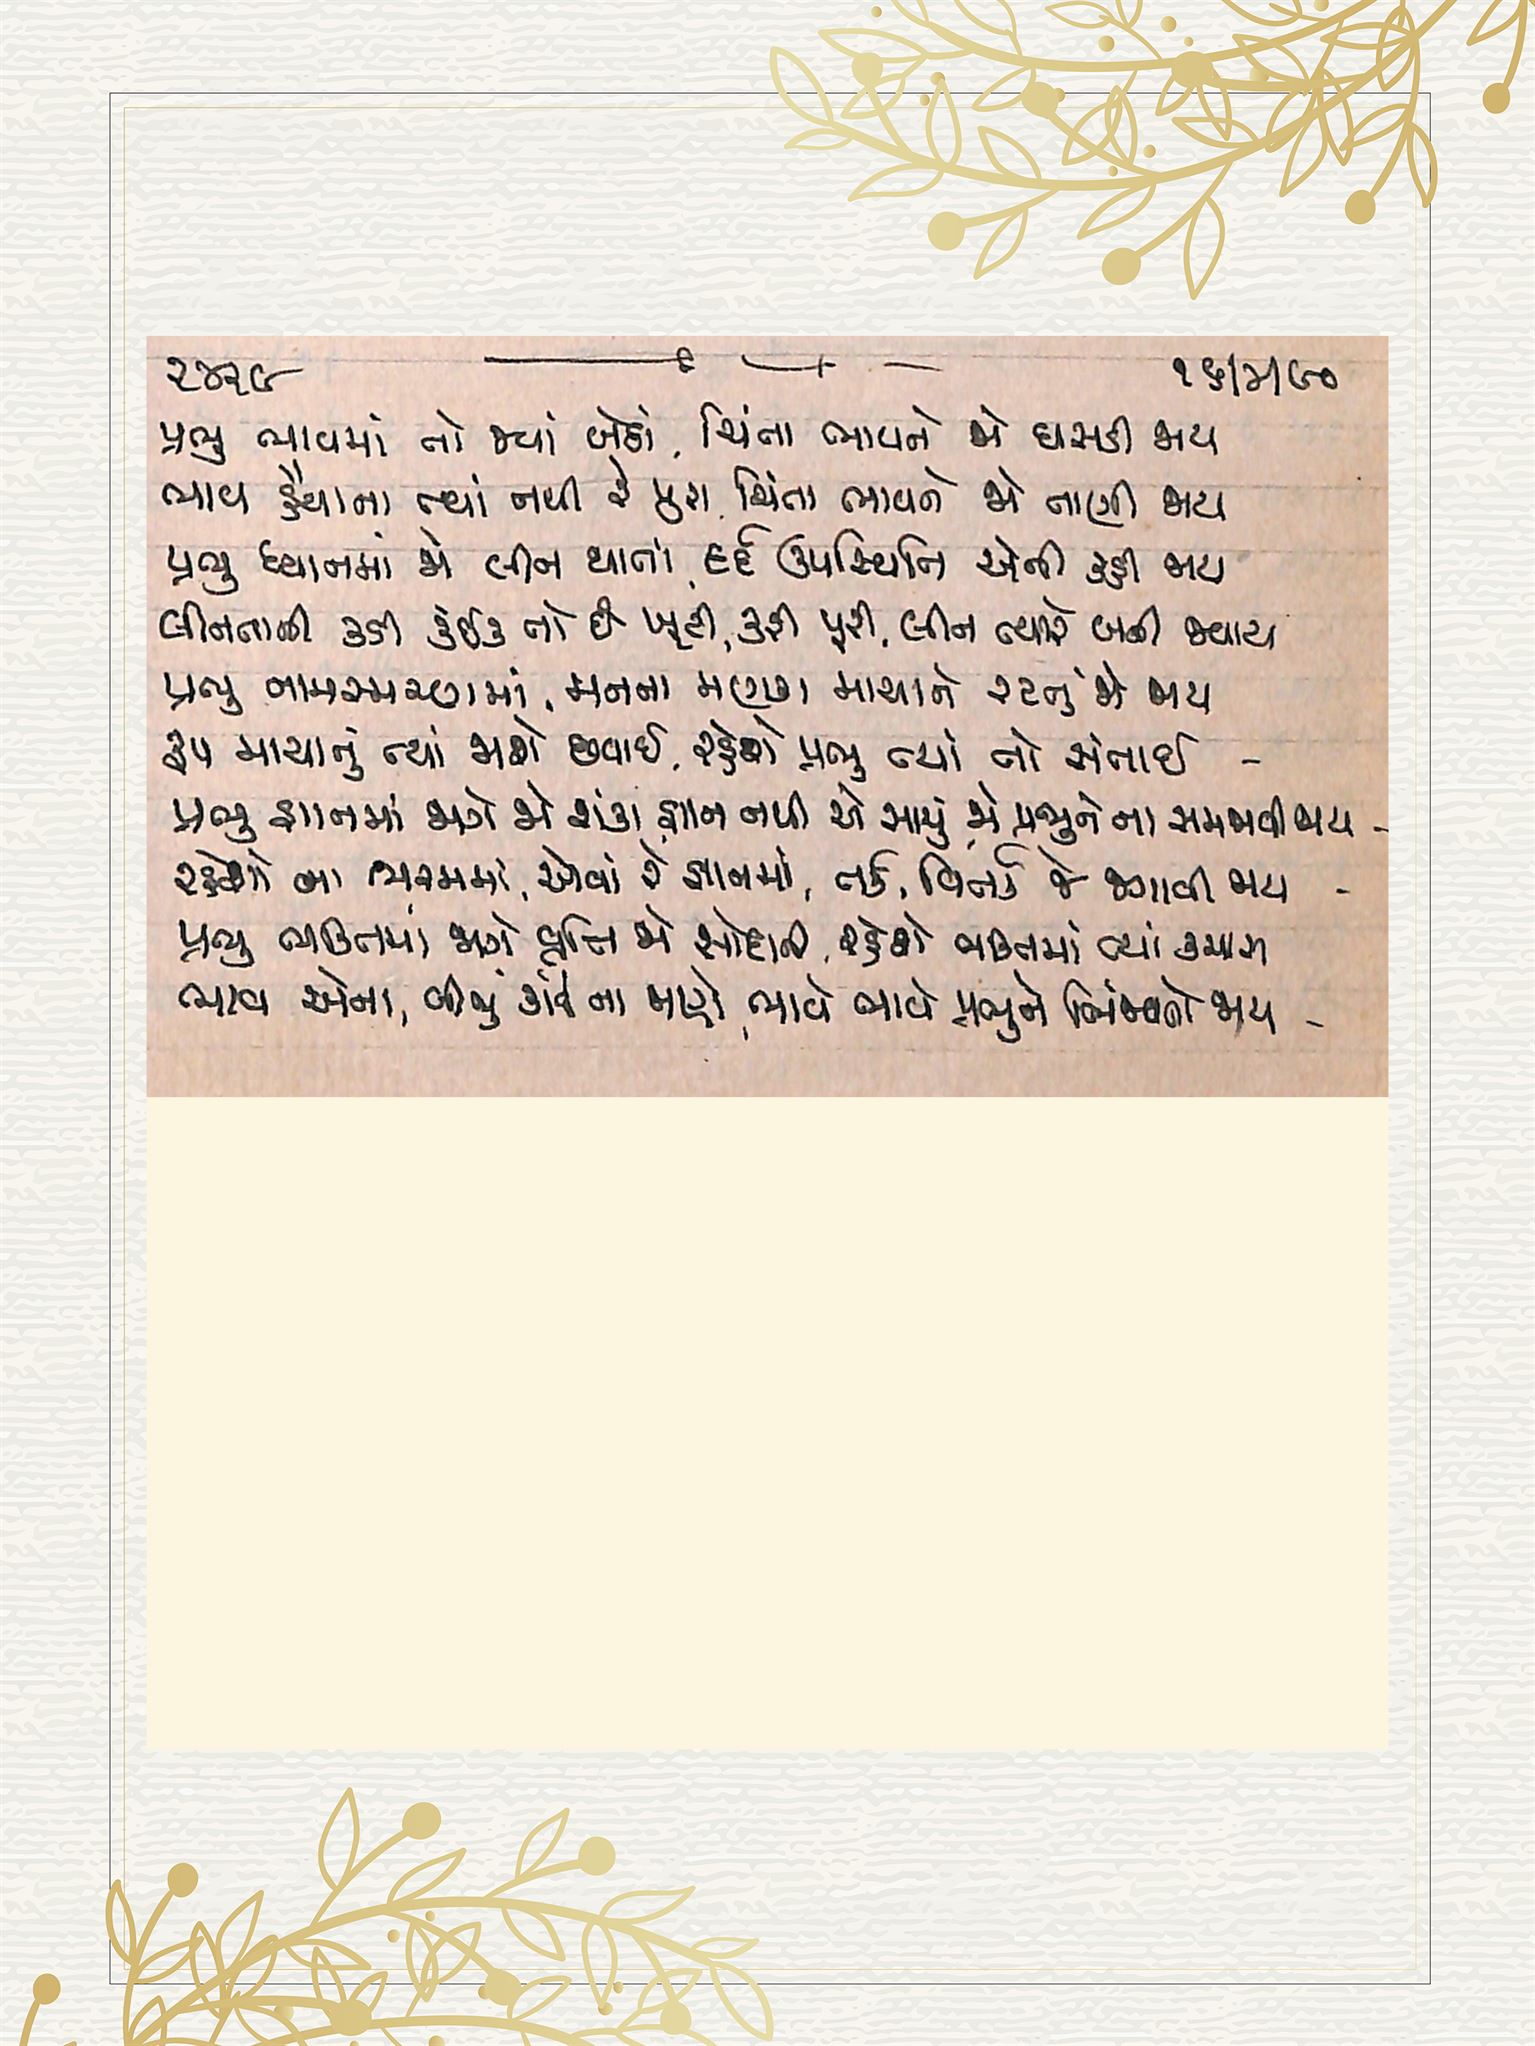 ૨૪૨૯ ૧૬/૪/૯૦
પ્રભુ ભાવમાં તો જ્યાં બેઠો, ચિંતા ભાવને જો ઘસડી જાય
ભાવ હૈયાના ત્યાં નથી રે પુરા, ચિંતા ભાવને જો તાણી જાય
પ્રભુ ધ્યાનમાં જો લીન થાતાં, હર્દ ઉપસ્થિતિ એની કહી જાય
લીનતાની કડી કંઈક તો છે ખૂટી, કરી પૂરી, લીન ત્યારે બની જવાય
પ્રભુ નામસ્મરણમાં, મનના મણકા માયાને રટતું જો જાય
રૂપ માયાનું ત્યાં જાશે છવાઈ, રહેશે પ્રભુ ત્યાં તો સંતાઈ -
પ્રભુ જ્ઞાનમાં જાગે જો શંકા, જ્ઞાન નથી એ સાચું, જો પ્રભુને ના સમજાવી જાય -
રહેશો ના ભરમમાં, એવાં રે જ્ઞાનમાં, તર્ક, વિતર્ક જે જગાવી જાય -
પ્રભુ ભક્તિમાં જાગે વૃત્તિ જો સોદાની, રહેશે ભક્તિમાં ત્યાં કચાશ
ભાવ એના, બીજું કાંઈ ના માગે, ભાવે ભાવે પ્રભુને જાય -